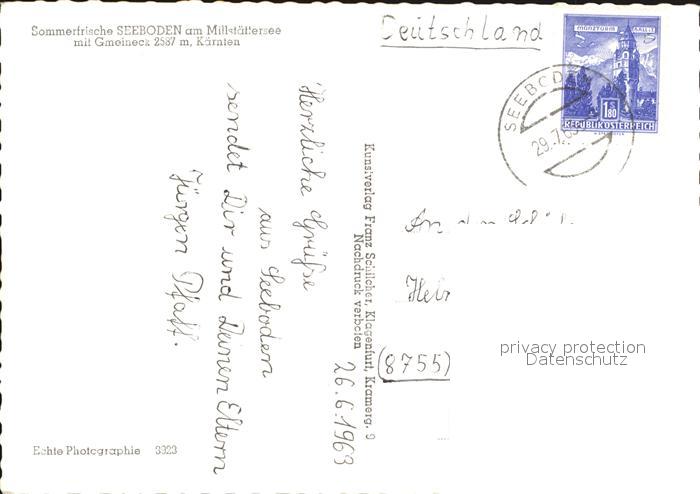 Sommerfrische SEEBODEN am Millstättersee
mit Gmeineck 2587 m, Kärnten
Deutschland
MÜNZTURM
REPUBLIK ÖSTERREICH
1.80
S
SEEBODEN
29.7.63
Herzliche Grüße
aus Seeboden
sendet Dir und Deinen Eltern
Jürgen Pfaff.
26.6.1963
Kunstverlag Franz Schilcher, Klagenfurt, Kramerg. 9
Nachdruck verboten
An
(8755)
privacy protection
Datenschutz
Echte Photographie 3923